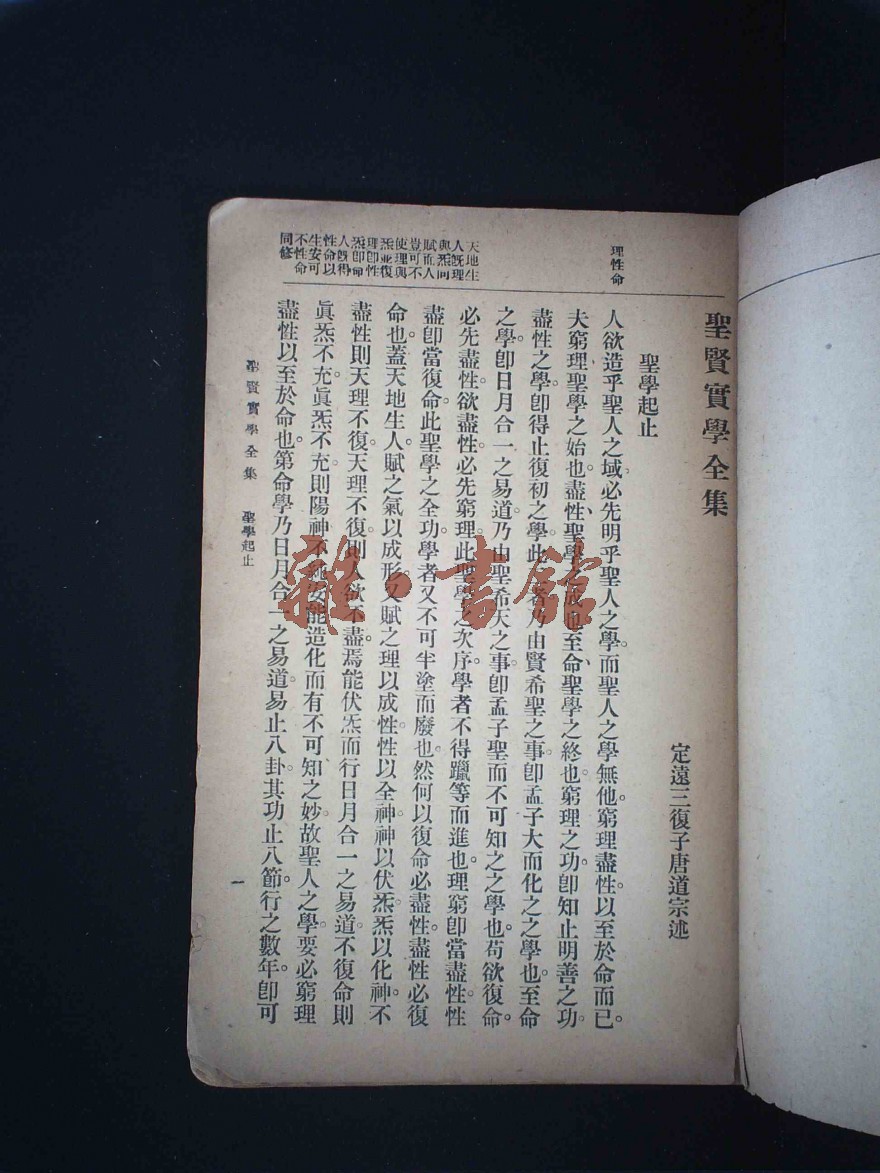 聖賢實學全集
定遠三復子唐道宗述
聖學起止
理性命
人欲造乎聖人之域必先明乎聖人之學。而聖人之學無他。窮理盡性。以至於命而已。
夫窮理聖學之始也。盡性聖學之成也、至命聖學之終也。窮理之功。卽知止明善之功。
盡性之學。卽得止復初之學。此二者乃由賢希聖之事。卽孟子大而化之之學也。至命
之學。卽日月合一之易道。乃由聖希天之事。卽孟子聖而不可知之之學也。苟欲復命。
必先盡性。欲盡性必先窮理。此聖學之次序。學者不得躐等而進也。理窮卽當盡性。性
盡卽當復命。此聖學之全功。學者又不可半塗而廢也。然何以復命必盡性。盡性必復
命也。蓋天地生人。賦之氣以成形。又賦之理以成性。性以全神。神以伏炁。炁以化神。不
盡性則天理不復。天理不復。則人欲不盡。焉能伏炁而行日月合一之易道。不復命則
眞炁不充。眞炁不充。則陽神不純。安能造化而有不可知之妙。故聖人之學。要必窮理
盡性以至於命也。第命學乃日月合一之易道。易止八卦。其功止八節。行之數年。卽可
天地生
人旣理
與炁同
賦而人
豈可不
使理與
炁並復
理卽性
炁卽命
人旣得
性命以
生安可
不性命
同修
聖賢實學全集 聖學起止
一
雜·書館